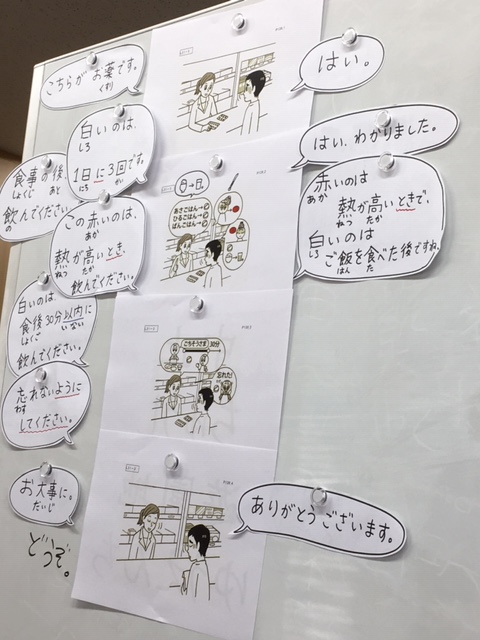 こちらが お薬です。
くすり
はい。
白いのは、
しろ
1日に3回です。
にち かい
食事の後
しょくじ あと
飲んでください。
の
はい、わかりました。
この赤いのは、
あか
熱が高いとき、
ねつ たか
飲んでください。
赤いのは
あか
熱が高いときで、
ねつ たか
白いのは
しろ
ご飯を食べた後ですね。
はん た
あさごはん→
ひるごはん→
ばんごはん→
白いのは
しろ
食後30分以内に
しょくご いない
飲んでください。
忘れないように
わす
してください。
ごちそうさま 30分
忘れた!
お大事に。
だいじ
どうぞ。
ありがとうございます。